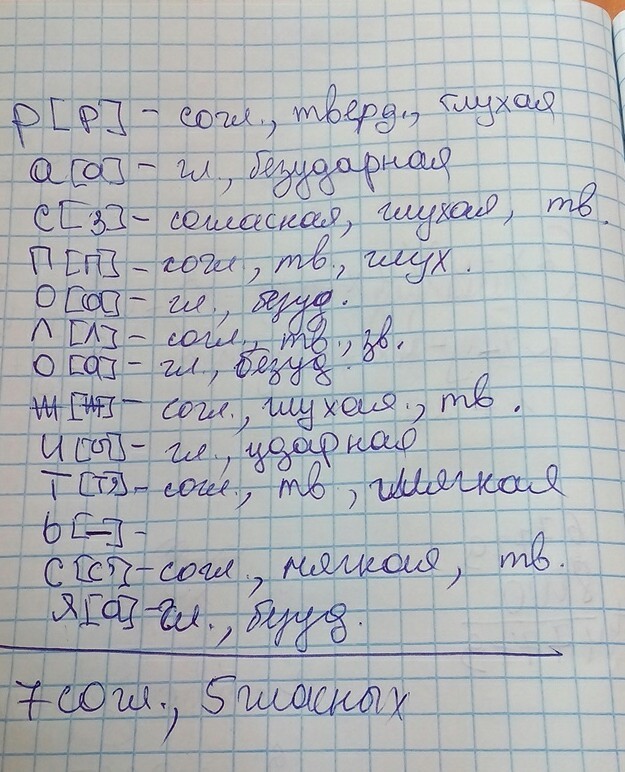 р [р] - согл., тверд., глухая
а [а] - гл., безударная
с [з] - согласная, глухая, тв.
п [п] - согл., тв., глух.
о [а] - гл., безуд.
л [л] - согл., тв., зв.
о [а] - гл., безуд.
ж [ж] - согл., глухая., тв.
и [ы] - гл., ударная
т [т] - согл., тв, мягкая
ь [—] -
с [с'] - согл., мягкая, тв.
я [а] - гл., безуд.
7 согл., 5 гласных